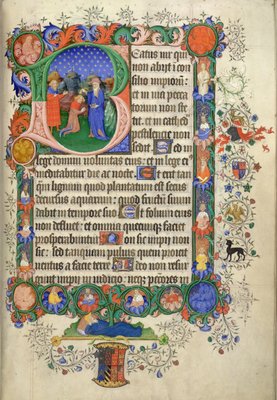 Beatus vir qui
non abijt i con
silio impiorum: et
in via pecca
torum non ste
tit et in cathedra
pestilencie non
sedit Sed in
lege domini voluntas eius: et in lege eius
meditabitur die ac nocte Et erit tan
quam lignum quod plantatum est secus
decursus aquarum: quod fructum suum
dabit in tempore suo Et folium eius
non defluet: et omnia quecumque faciet
prosperabuntur Non sic impij non
sic: sed tanquam puluis quem proicit
ventus a facie terre Ideo non resur
gunt impij in iudicio: neque peccatores in